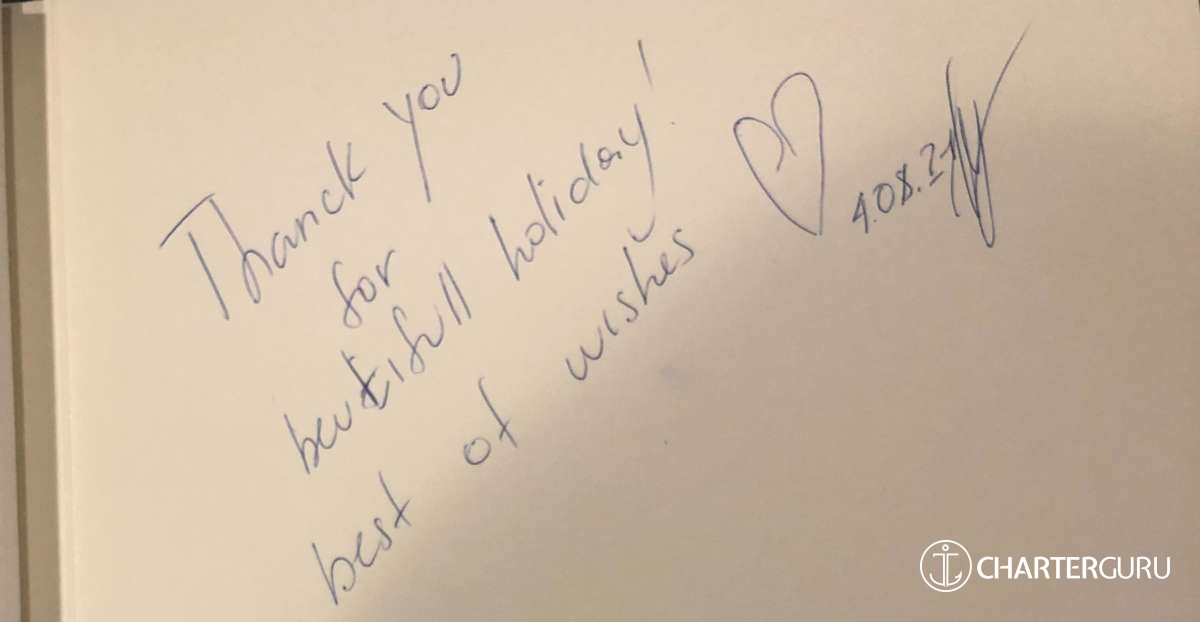 Thanck you
for
beutifull holiday!
best of wishes
4.08.21
CHARTERGURU